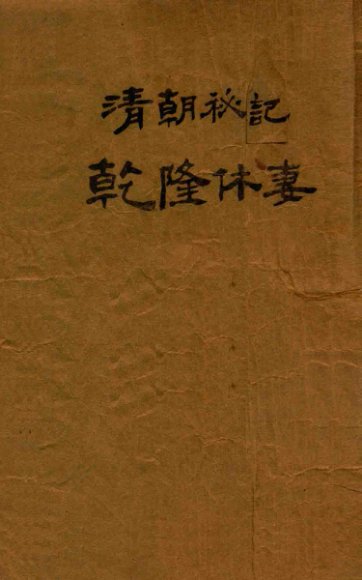 清朝祕記
乾隆休妻